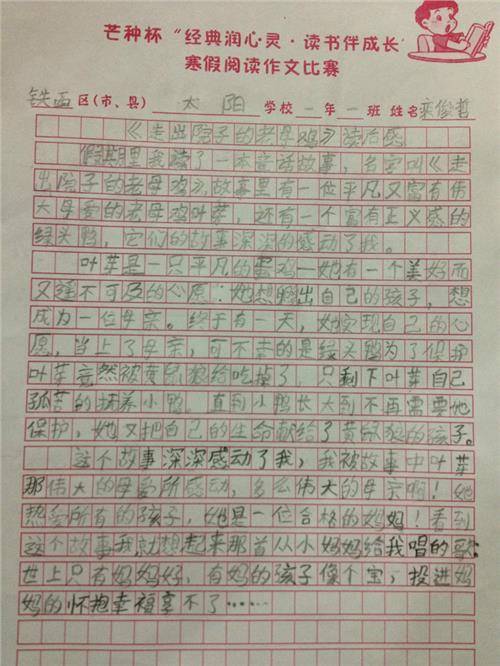 芒种杯“经典润心灵·读书伴成长
寒假阅读作文比赛
铁西区(市、县) 太阳 学校 一年一班 姓名 栾俊哲
《走出院子的老母鸡》读后感
假期里我读了一本童话故事，名字叫《走
出院子的老母鸡》。故事里有一位平凡又富有伟
大母爱的老母鸡叶芽，还有一个富有正义感的
绿头鸭，它们的故事深深的感动了我。
叶芽是一只平凡的蛋鸡—她有一个美好而
又遥不可及的心愿：她想孵出自己的孩子，想
成为一位母亲。终于有一天，她实现自己的心
愿，当上了母亲，可不幸的是绿头鸭为了保护
叶芽竟然被黄鼠狼给吃掉了，只剩下叶芽自己
孤苦的抚养小鸭。直到小鸭长大到不再需要她
保护，她又把自己的生命献给了黄鼠狼的孩子。
这个故事深深感动了我，我被故事中叶芽
那伟大的母爱所感动，多么伟大的母亲啊！她
热爱所有的孩子，她是一位合格的妈妈！看到
这个故事我就想起来那首从小妈妈给我唱的歌：
世上只有妈妈好，有妈的孩子像个宝，投进妈
妈的怀抱幸福享不了……